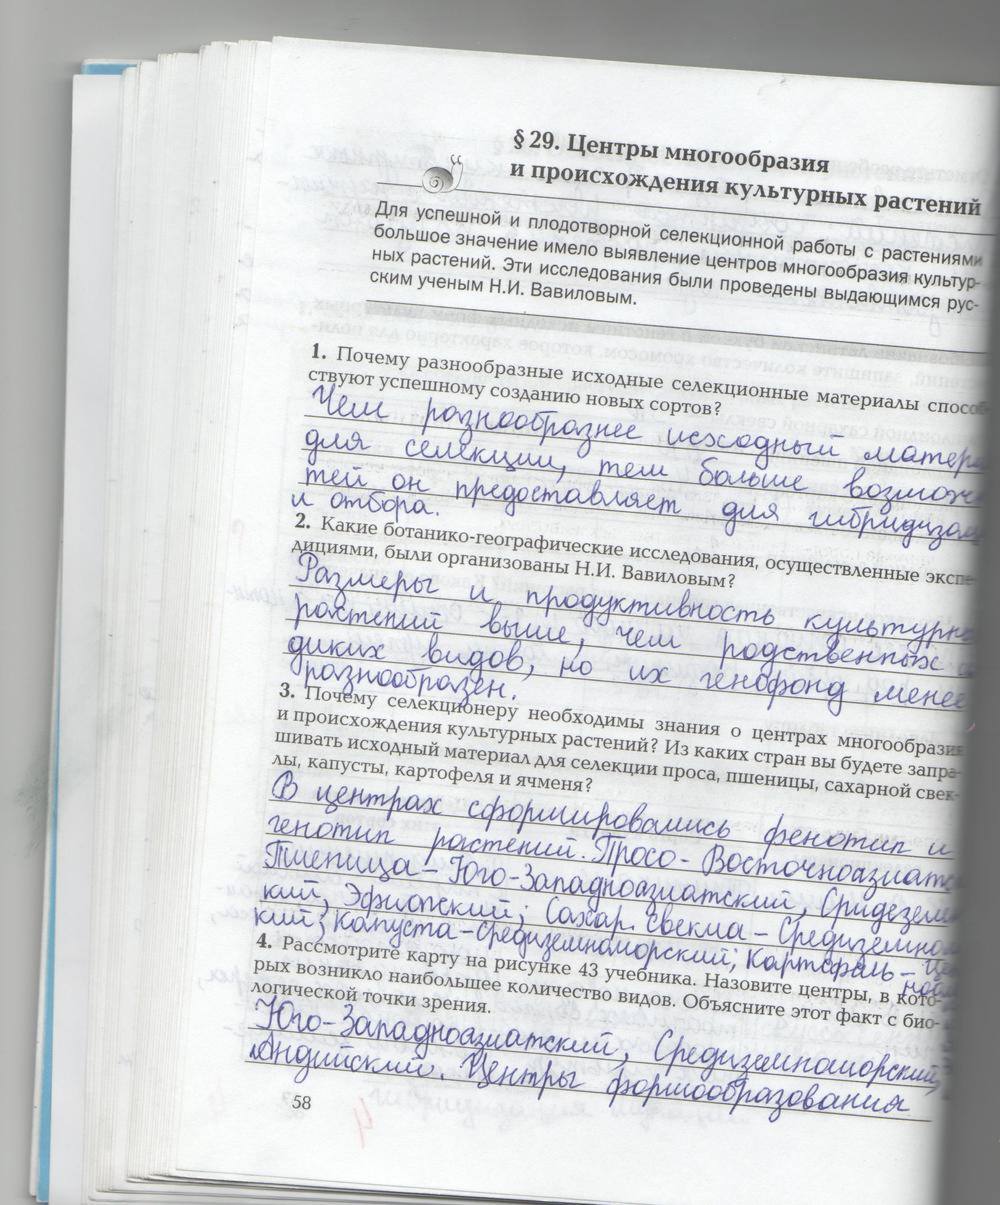 § 29. Центры многообразия
и происхождения культурных растений
Для успешной и плодотворной селекционной работы с растениями
большое значение имело выявление центров многообразия культур-
ных растений. Эти исследования были проведены выдающимся рус-
ским ученым Н.И. Вавиловым.
1. Почему разнообразные исходные селекционные материалы способ-
ствуют успешному созданию новых сортов?
Чем разнообразнее исходный матери
для селекции, тем больше возможно
тей он предоставляет для гибридизац
и отбора.
2. Какие ботанико-географические исследования, осуществленные экспе-
дициями, были организованы Н.И. Вавиловым?
Размеры и продуктивность культурны
растений выше, чем родственных с
диких видов, но их генофонд менее
разнообразен.
3. Почему селекционеру необходимы знания о центрах многообразия
и происхождения культурных растений? Из каких стран вы будете запра-
шивать исходный материал для селекции проса, пшеницы, сахарной свек-
лы, капусты, картофеля и ячменя?
В центрах сформировались фенотип и
генотип растений. Просо - Восточноазиатс
Пшеница - Юго-Западноазиатский, Средезем
кий, Эфиопский; Сахар. Свекла - Средиземном
кий; Капуста - средиземноморский; Картофель -
4. Рассмотрите карту на рисунке 43 учебника. Назовите центры, в кото-
рых возникло наибольшее количество видов. Объясните этот факт с био-
логической точки зрения.
Юго-Западноазиатский, Средиземноморский,
Андийский. Центры формообразования
58
4